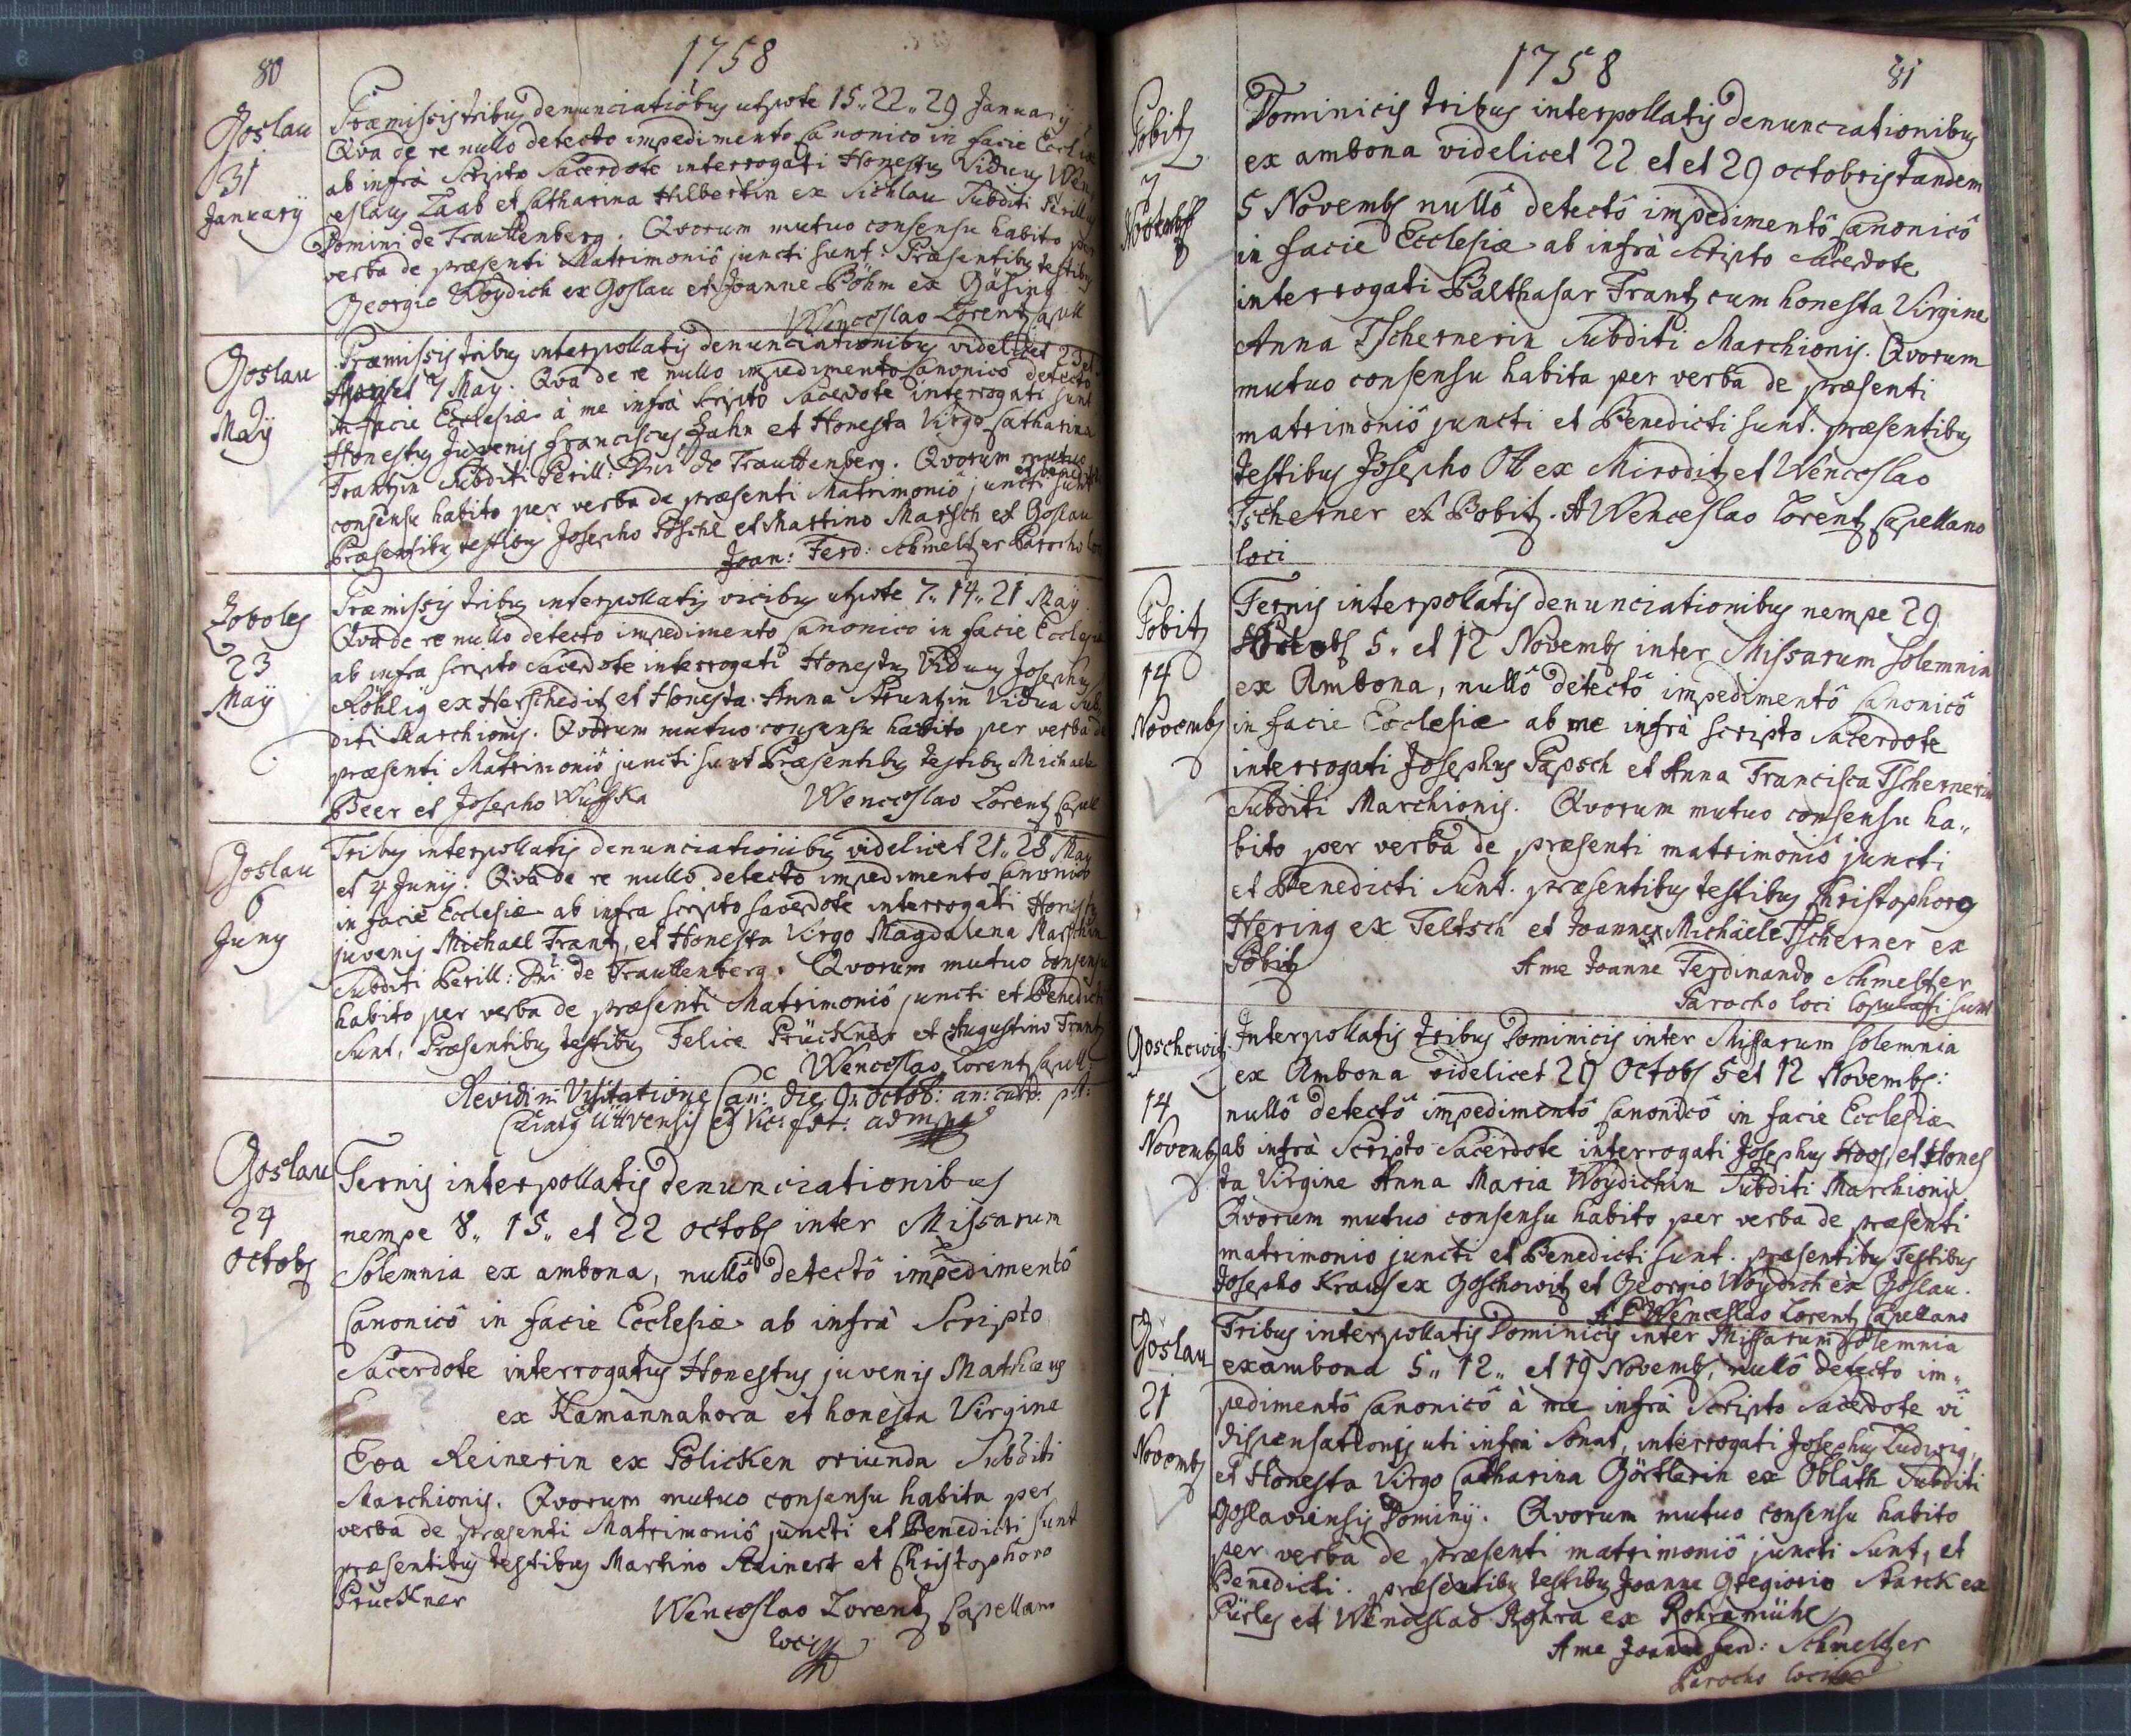 80
1758
Goslau
31
Januarÿ
Præmissis tribus denunciatiõbus utpote 15. 22. 29 Januarÿ
Qva de re nullo detecto impedimento Canonico in facie Eccl
ab infrà Scripto Sacerdote interrogati Honestus Viduus Wen
ceslaus Zaab et Catharina Hilbertin ex Sichlau Subditi Perill
Domini de Trauttenberg. Qvorum mutuo consensu habito per
verba de præsenti Matrimoniô juncti sunt. Præsentibus testibus
Georgio Woÿdich ex Goslau et Joanne Böhm ex Gäsing
Wenceslao Lorentz Capell
Goslau
Maÿ
Præmissis tribus interpollatis denunciationibus videlicet 23 et
et 7 May. Qva de re nullo impedimento Canonico detecto
in facie Ecclesiæ à me infrà scripto Sacerdote interrogati sunt
Honestus Juvenis Franciscus Jahn et Honesta Virgo Catharina
Frantzin Subditi Perill: Dni de Trauttenberg. Qvorum mutuo
consensu habito per verba de præsenti Matrimoniô juncti sunt
et bened
Præsentibus testibus Josepho Pöschl et Martino Marsch ex Goslau
Joan: Ferd: Schmeltzer Parocho
Zoboles
23
Maÿ
Præmissis tribus interpollatis vicibus utpote 7. 14. 21 May
Qva de re nullo detecto impedimento Canonico in facie Ecclesiæ
ab infra scripto Sacerdote interrogati Honestus Viduus Josephus
Röhlig ex Herscheditz et Honesta Anna Vidua Sub
diti Marchionis. Qvorum mutuo consensu habito per verba de
præsenti Matrimoniô juncti sunt Præsentibus testibus Michaele
Beer et Josepho Wuschka
Wenceslao Lorentz Capell
Goslau
6
Juny
Tribus interpollatis denunciationibus videlicet 21. 28 May
et 4 Junÿ. Qva de re nullo detecto impedimento Canonico
in facie Ecclesiæ ab infra scripto sacerdote interrogati Honestus
juvenis Michael Frantz, et Honesta Virgo Magdalena Marschin
Subditi Perill: Dni de Trauttenberg. Qvorum mutuo consensu
habito per verba de præsenti Matrimoniô juncti et Benedicti
Sunt, Præsentibus testibus Felice Prückner et Augustino Frantz
Wenceslao Lorentz Capell:
Revidi in Visitatione Can: die 9. Octob: an:
Vic: for: admpa
Goslau
24
Octobs
Ternis interpollatis denunciationibus
nempe 8. 15. et 22 octobs inter Missarum
Solemnia ex ambona, nullô detectô impedimentô
Canonicô in facie Ecclesiæ ab infrà Scripto
Sacerdote interrogatus Honestus juvenis Mathæus
ex Kamannahora et honesta Virgine
Eva Reinerin ex Policken oriunda Subditi
Marchionis. Qvorum mutuo consensu habita per
verba de præsenti Matrimoniô juncti et Benedicti sunt
præsentibus testibus Martino Reinert et Christophoro
Prückner
Wenceslao Lorentz Capellano
loci
1758
81
Pobitz
7
Dominicis tribus interpollatis denunciationibus
ex ambona videlicet 22 et et 29 octobris tandem
5 Novembs nullô detectô impedimentô Canonicô
in facie Ecclesiæ ab infrà scripto sacerdote
interrogati Balthasar Frantz cum honesta Virgine
Anna Tschernerin Subditi Marchionis. Qvorum
mutuo consensu habita per verba de præsenti
matrimoniô juncti et Benedicti sunt. præsentibus
testibus Josepho Ott ex Miroditz et Wenceslao
Tscherner ex Pobitz. A Wenceslao Lorentz Capellano
loci
Pobitz
14
Novembs
Ternis interpollatis denunciationibus nempe 29
Octobs 5. et 12 Novembs inter Missarum solemnia
ex Ambona, nullô detectô impedimentô Canonicô
in facie Ecclesiæ ab me infrà scripto Sacerdote
interrogati Josephus Papsch et Anna Francisca Tschernerin
Subditi Marchionis. Qvorum mutuo consensu ha„
bito per verba de præsenti matrimoniô juncti
et Benedicti Sunt. præsentibus testibus Christophoro
Hering ex Teltsch et Joanne Michäele Tscherner ex
Pobitz
A me Joanne Ferdinando Schmeltzer
Parocho loci Copulati sunt
Goschowitz
14
Novembs
Interpollatis tribus Dominicis inter Missarum solemnia
ex Ambona videlicet 29 Octobs 5 et 12 Novembs:
nullô detectô impedimentô Canonicô in facie Ecclesiæ
ab infrà Scripto Sacerdote interrogati Josephus Hoos, et Hones
ta Virgine Anna Maria Woÿdichin Subditi Marchionis
Qvorum mutuo consensu habito per verba de præsenti
matrimonio juncti et Benedicti sunt. præsentibus Testibus
Josepho Kraus ex Goschowitz et Georgio Woÿdich ex Goslau.
A P Wenceslao Lorentz Capellano
Goslau
21
Novembs
Tribus interpollatis Dominicis inter Missarum Solemnia
exambona 5. 12. et 19 Novembs, nullô detecto im„
pedimentô Canonicô à me infrà Scripto Sacerdote vi
dispensationis uti infrà Sonat, interrogati Josephus Ludwig,
et Honesta Virgo Catharina Görtlerin ex Oblath Subditi
Goslaviensis Dominÿ. Qvorum mutuo consensu habito
per verba de præsenti matrimoniô juncti Sunt, et
Benedicti. præsentibus testibus Joanne Gregiorio Starck ex
Pürles et Wenceslao Rohra ex Rohramühl
A me Joanne Ferd: Schmeltzer
Parocho loci